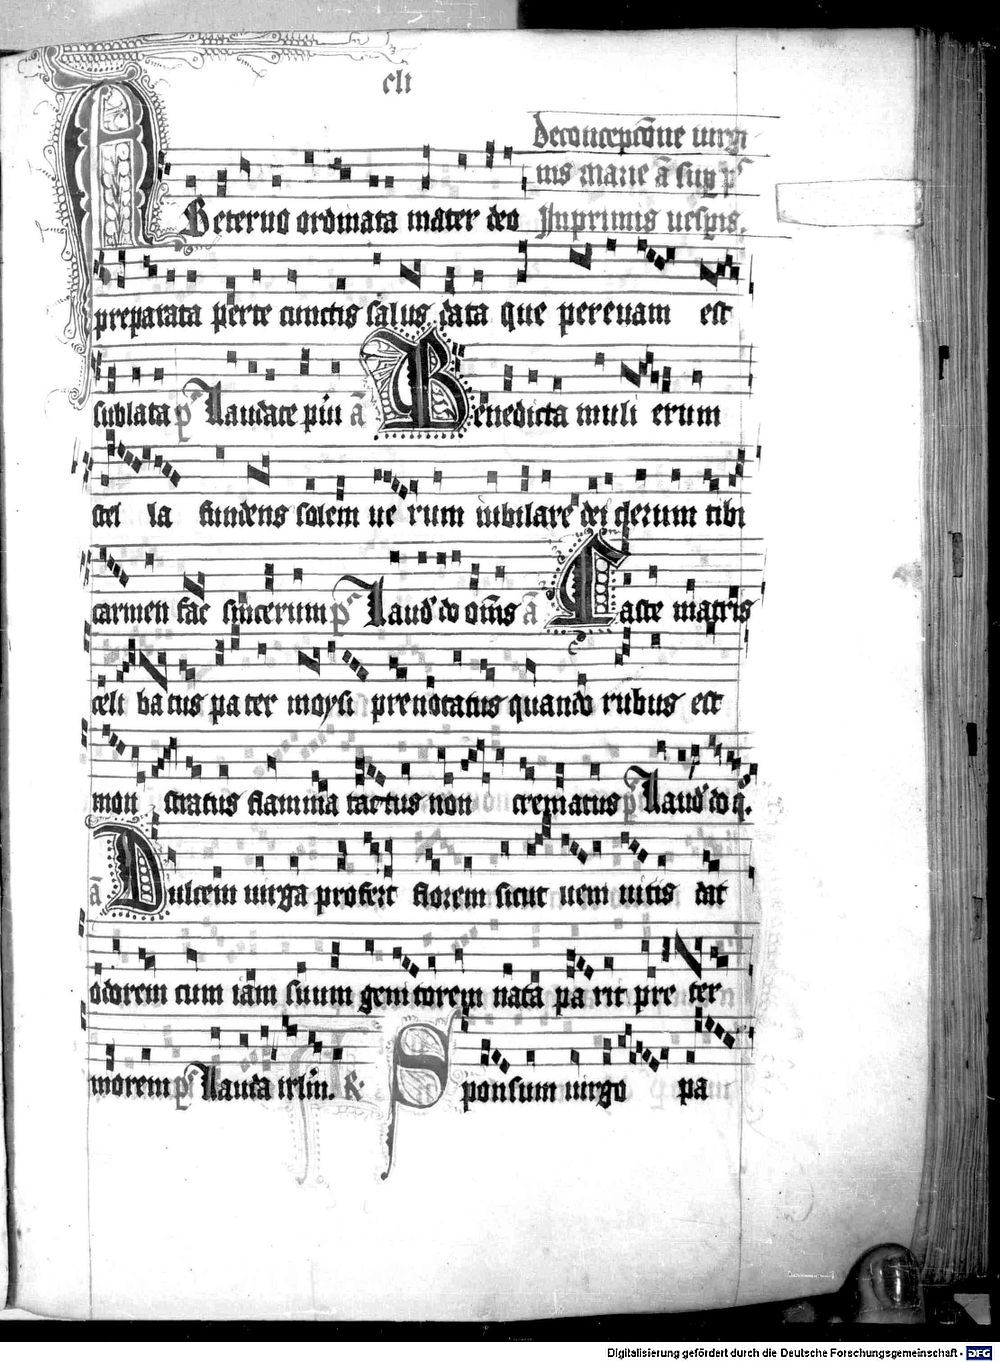 cli
de concepcōne uirgi
nis marie ā sup p̄s
Ab eterno ordinata mater deo In primis uespis.
preparata per te cunctis salus data que per euam est
sublata p̄s Laudate pui ā Benedicta muli erum
stel la fundens solem ue rum iubilare dei clerum tibi
carmen fac sincerum p̄s Laud' do om̄s ā Caste matris
celi ba tus pa ter moysi prenotatus quando rubus est
mon stratus flamma tactus non crematus p̄s Laud' do q.
ā Dulcem uirga profert florem sicut uem uitis dat
odorem cum iam suum geni torem nata pa rit pre ter
morem p̄s Lauda irl̄m. R. Sponsum uirgo pa
Digitalisierung gefördert durch die Deutsche Forschungsgemeinschaft - DFG